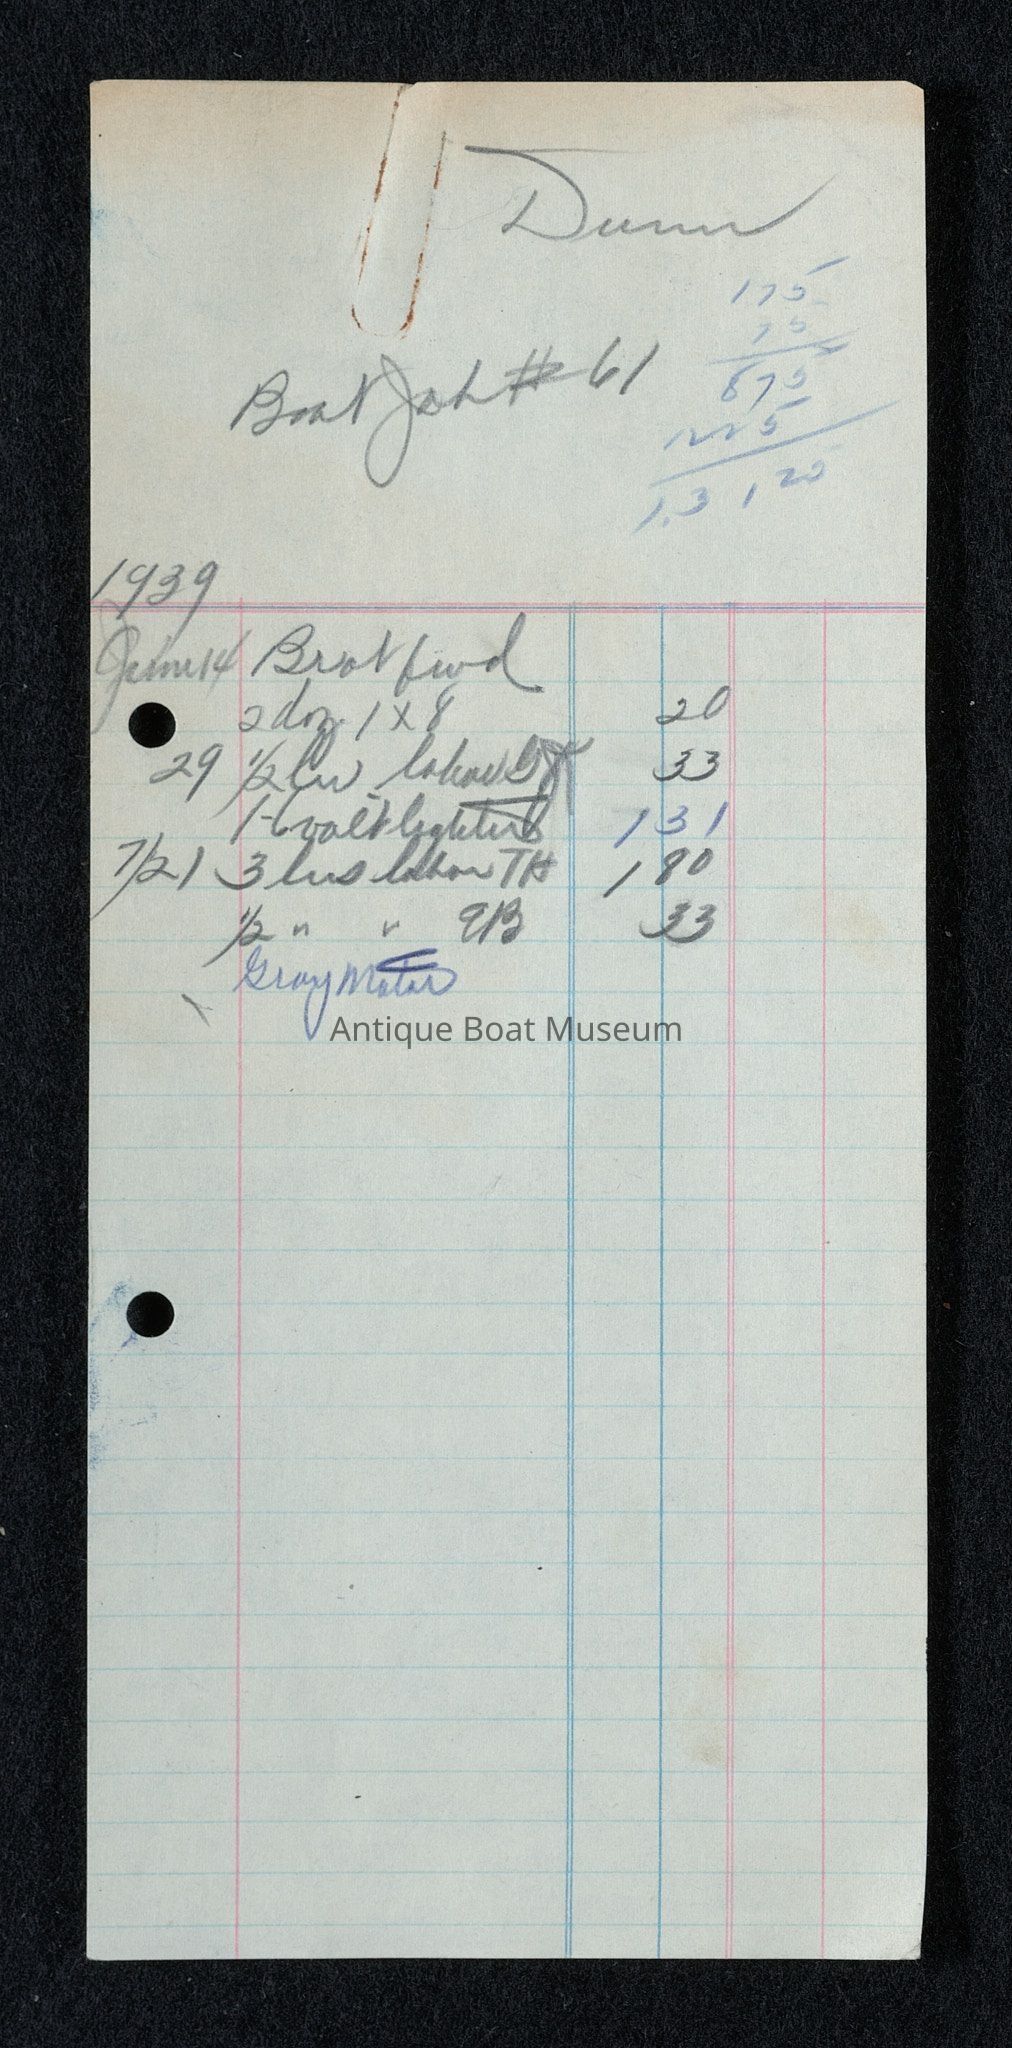 Dunn
175
75
875
1225
13125
Boat Job # 61
1939
June 14 Brot fwd
2 doz 1 x 8 20
29 1/2 hr labor 33
1-6 volt lighter 1 31
7/21 3 hrs labor TH 1 80
1/2 " " EB 33
Gray Motor
Antique Boat Museum